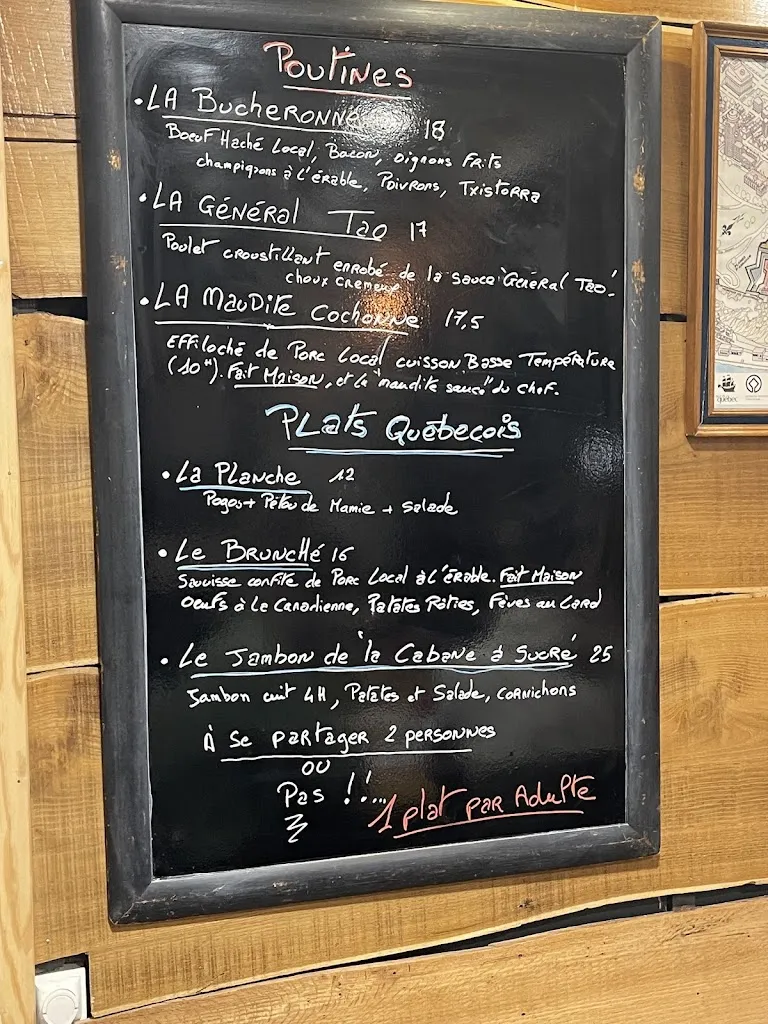 Poutines
• La Bucheronne 18
Boeuf Haché Local, Bacon, Oignons Frits
champignons à l'érable, Poivrons, Txistorra
• La Général Tao 17
Poulet croustillant enrobé de la sauce "Général Tao".
choux cremeux
• La Maudite Cochonne 17,5
Effiloché de Porc Local cuisson Basse Température
(10H). Fait Maison, et la "maudite sauce" du chef.
Plats Québecois
• La Planche 12
Pogos + Pétou de Mamie + Salade
• Le Brunché 16
Saucisse confite de Porc Local à l'érable. Fait Maison
Oeufs à le Canadienne, Patates Rôties, Fèves au Lard
• Le Jambon de "la Cabane à Sucré" 25
Jambon cuit 4H, Patates et Salade, Cornichons
À se partager 2 personnes
ou
Pas !!...
1 plat par Adulte
québec